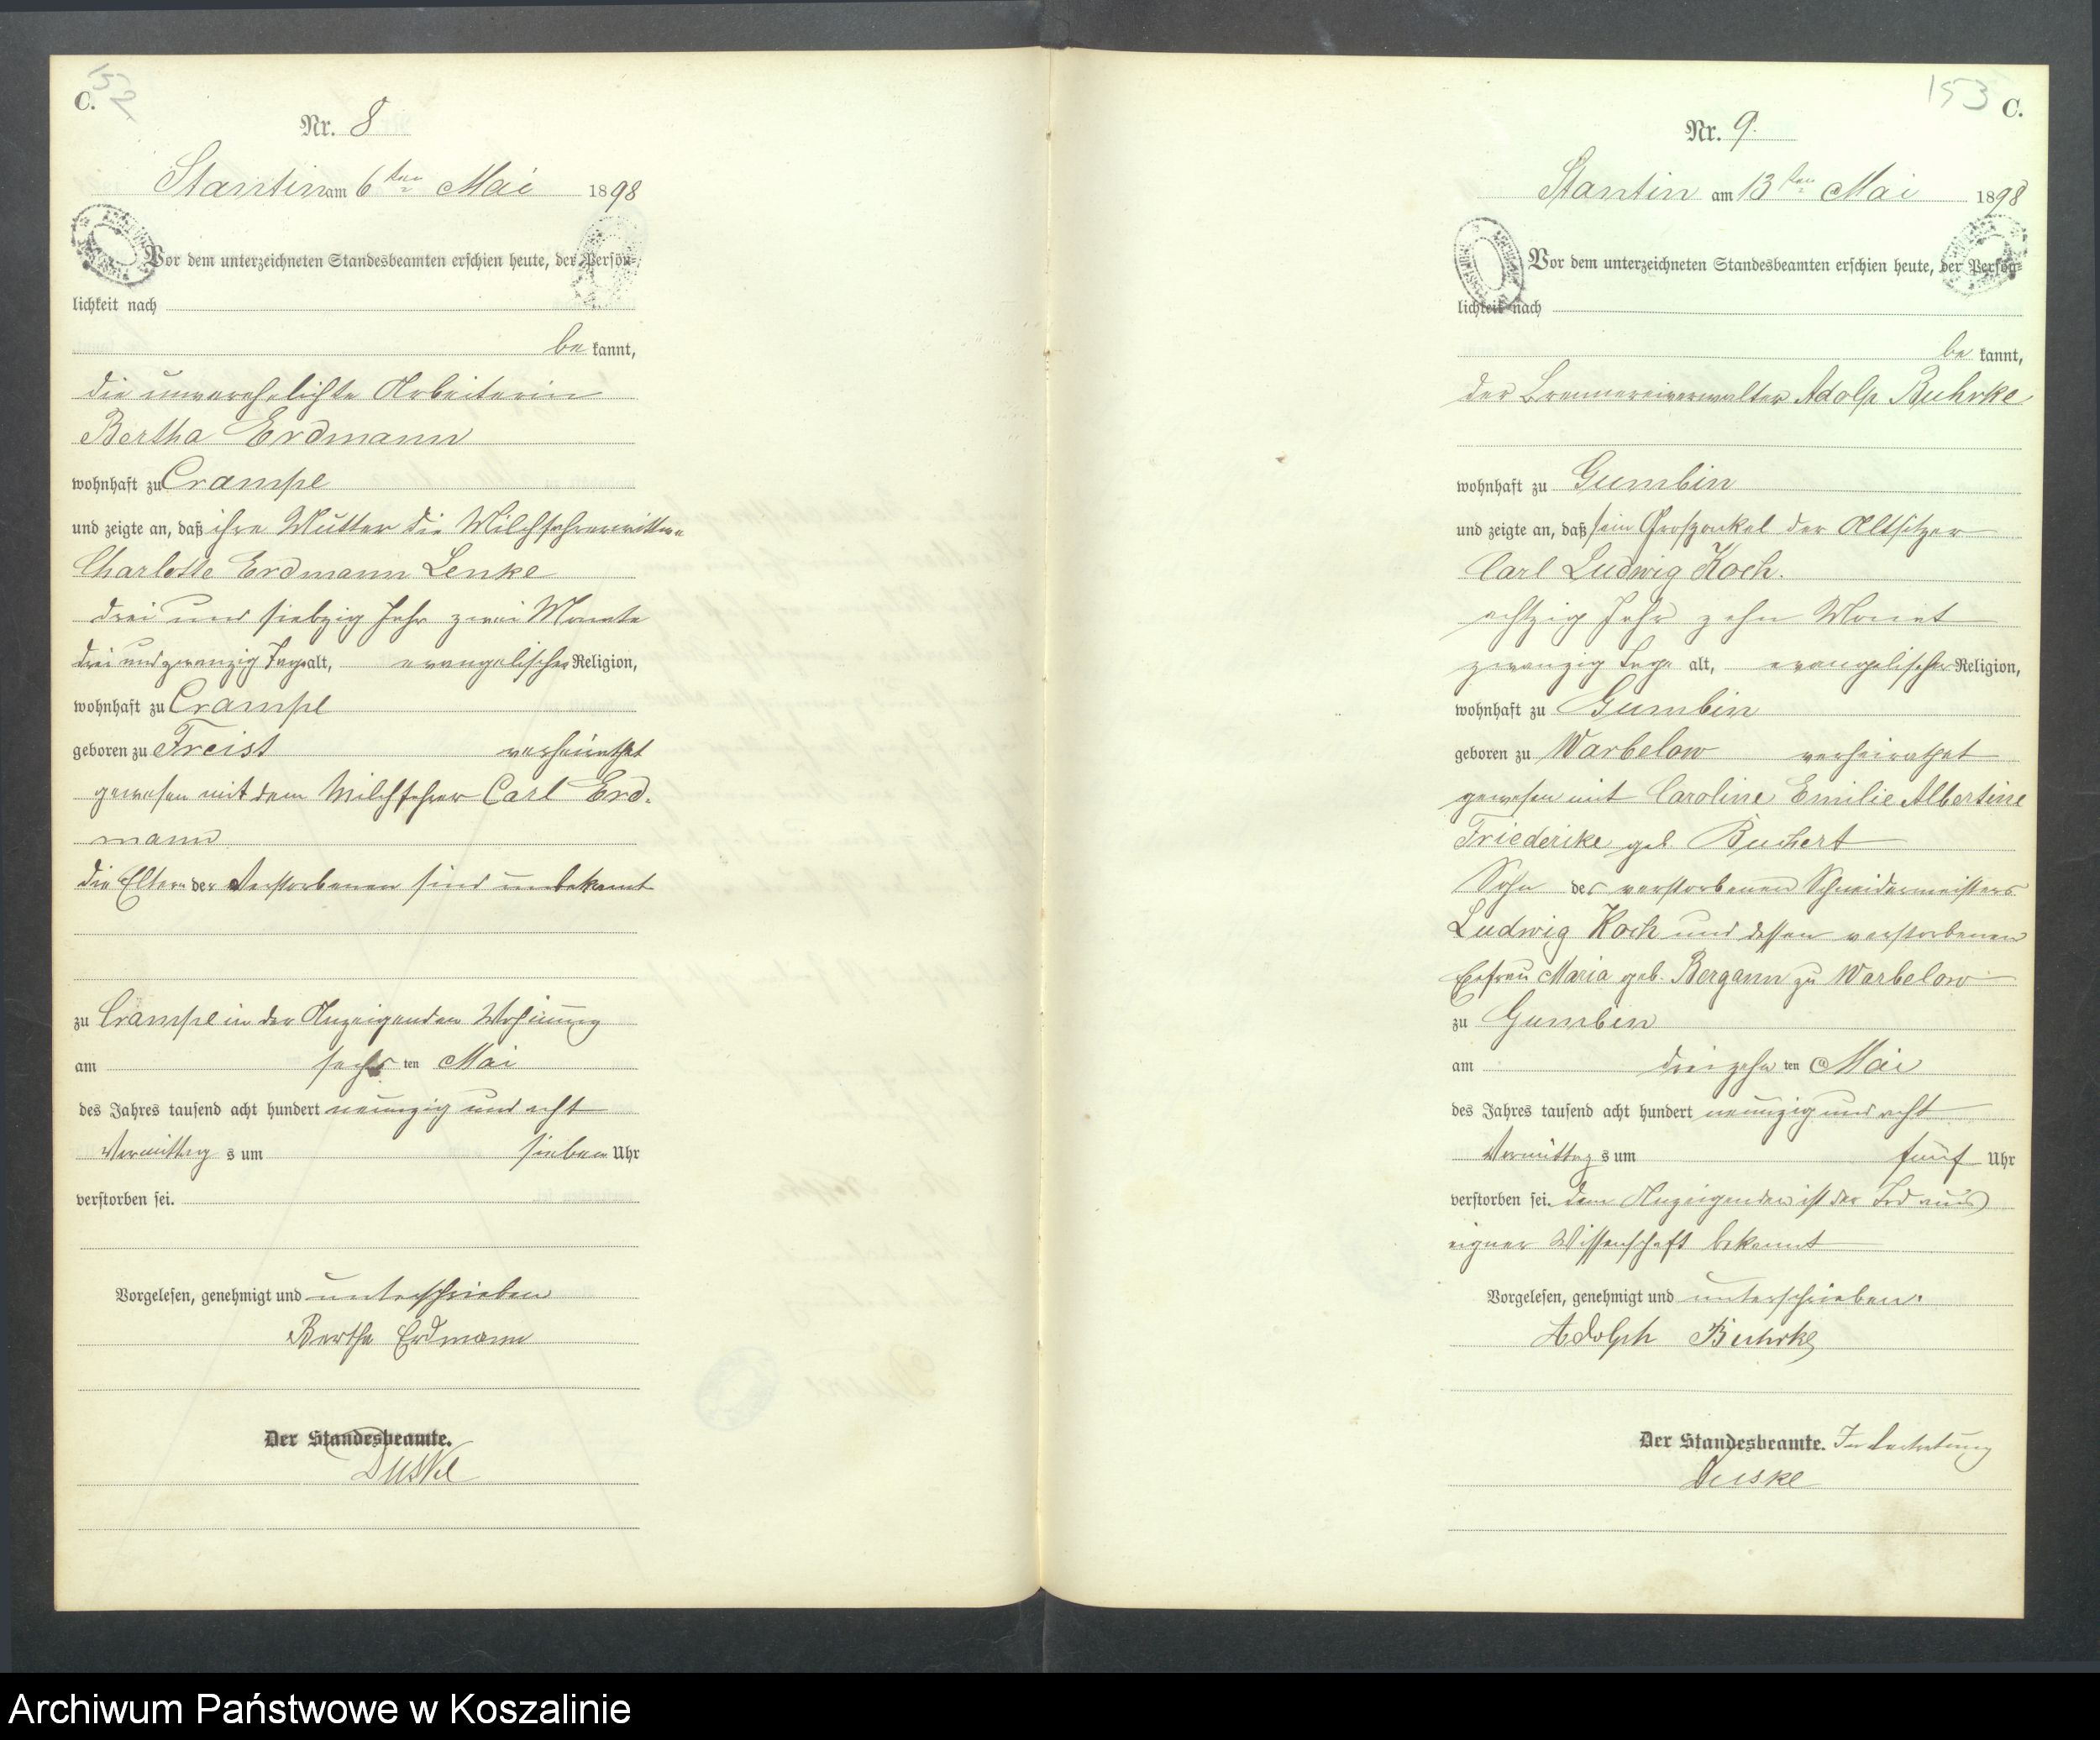 152
C.
Nr. 8
Stantin am 6ten Mai 1898
Vor dem unterzeichneten Standesbeamten erschien heute, der Persön-
lichkeit nach
be kannt,
die unverehelichte Arbeiterin
Bertha Erdmann
wohnhaft zu Crampe
und zeigte an, daß ihre Mutter die Milchfahrerwittwe
Charlotte Erdmann Lenke
drei und siebzig Jahr zwei Monate
drei und zwanzig Tage alt, evangelischer Religion,
wohnhaft zu Crampe
geboren zu Freist verheirathet
gewesen mit dem Milchfahrer Carl Erd-
mann
die Eltern der Verstorbenen sind unbekannt
zu Crampe in der Anzeigenden Wohnung
am sechs ten Mai
des Jahres tausend acht hundert neunzig und acht
Vormittag s um sieben Uhr
verstorben sei.
Vorgelesen, genehmigt und unterschrieben
Bertha Erdmann
Der Standesbeamte.
Duske
153
C.
Nr. 9.
Stantin am 13ten Mai 1898
Vor dem unterzeichneten Standesbeamten erschien heute, der Persön-
lichkeit nach
be kannt,
der Brennereiverwalter Adolp Buhrke
wohnhaft zu Gumbin
und zeigte an, daß sein Grossonkel der Altsitzer
Carl Ludwig Koch.
achtzig Jahr zehn Monat
zwanzig Tage alt, evangelischer Religion,
wohnhaft zu Gumbin
geboren zu Warbelow verheirathet
gewesen mit Caroline Emilie Albertine
Friedericke geb. Buchert
Sohn des verstorbenen Schneidermeisters
Ludwig Koch und dessen verstorbenen
Ehefrau Maria geb. Bergann zu Warbelow
zu Gumbin
am dreizehn ten Mai
des Jahres tausend acht hundert neunzig und acht
Vormittag s um fünf Uhr
verstorben sei. dem Anzeigenden ist der Tod aus
eigner Wissenschaft bekannt
Vorgelesen, genehmigt und unterschrieben.
Adolph Buhrke
Der Standesbeamte. In Vertretung
Duske
Archiwum Państwowe w Koszalinie